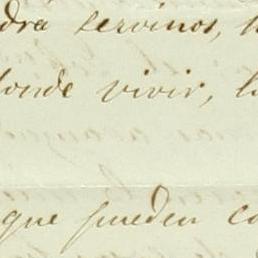 drá servirnos,
donde vivir,
que pueden co